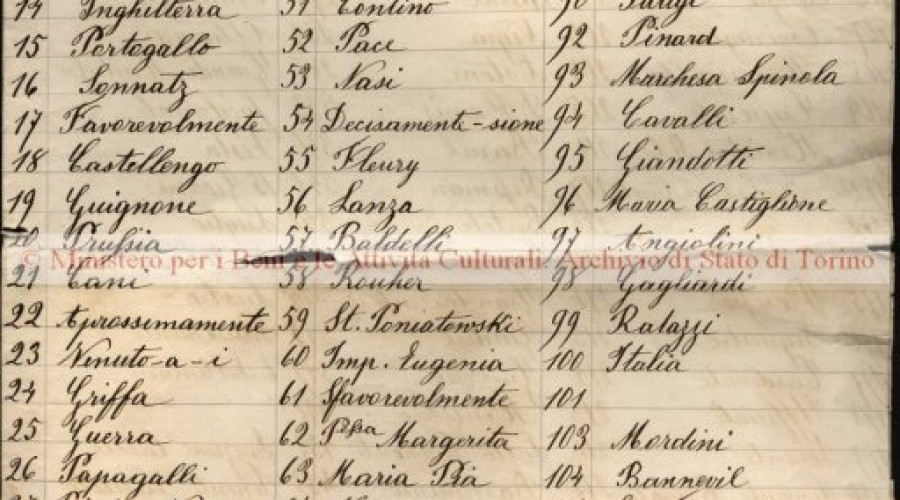 14 Inghilterra 51 Contino 90 Parigi
15 Portogallo 52 Pace 92 Pinard
16 Sonnatz 53 Nasi 93 Marchesa Spinola
17 Favorevolmente 54 Decisamente-sione 94 Cavalli
18 Castellengo 55 Fleury 95 Giandotti
19 Guignone 56 Lanza 96 Maria Castiglione
20 Prussia 57 Baldelli 97 Angiolini
© Ministero per i Beni e le Attività Culturali Archivio di Stato di Torino
21 Cani 58 Rouher 98 Gagliardi
22 Aprossimamente 59 St. Poniatowski 99 Ratazzi
23 Venuto-a-i 60 Imp. Eugenia 100 Italia
24 Griffa 61 Sfavorevolmente 101
25 Guerra 62 Pssa Margerita 103 Mordini
26 Papagalli 63 Maria Pia 104 Bannevil